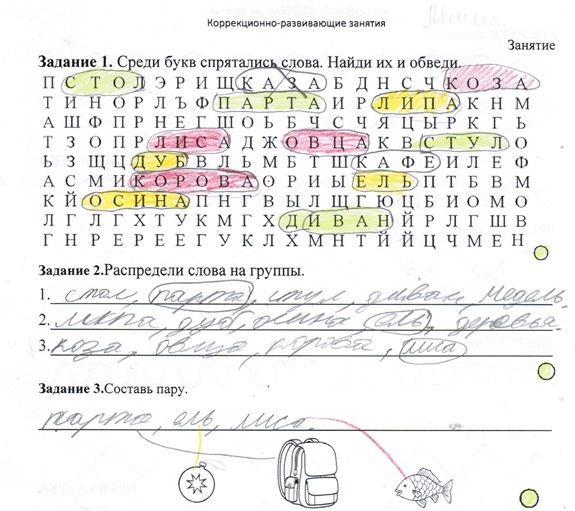 Коррекционно-развивающие занятия
Занятие
Задание 1. Среди букв спрятались слова. Найди их и обведи.
П С Т О Л Э Р И Ш К А З А Б Д Н С Ч К О З А
Т И Н О Р Л Ъ Ф П А Р Т А И Р Л И П А К Н М
А Ш Ф П Р Н Е Г Ш О Ь Б Ч С Ч Я Ц Ы Р К Г Ь
Т З О П Р Л И С А Д Ж О В Ц А К В С Т У Л О
Ь З Щ Ц Д У Б В Л Ь М Б Т Ш К А Ф Е И Л Е Ф
А С М И К О Р О В А Ф Р И Ы Е Л Ь П Т Б В М
К Й О С И Н А П Н Г В Ы Л Щ Г Ю Ц Б И О М О
Л Г Л Г Х Т У К М Г Х Д И В А Н Й Р Л Г Ш В
Г Н Р Е Р Е Е Г У К Л Х М Н Т Й Й Ц Ч М Е Н
Задание 2.Распредели слова на группы.
1. стол, парта, стул, диван, медель
2. липа, дуб, осина, ель, деревья
3. коза, овца, корова, лиса
Задание 3.Составь пару.
парта, ель, лиса.